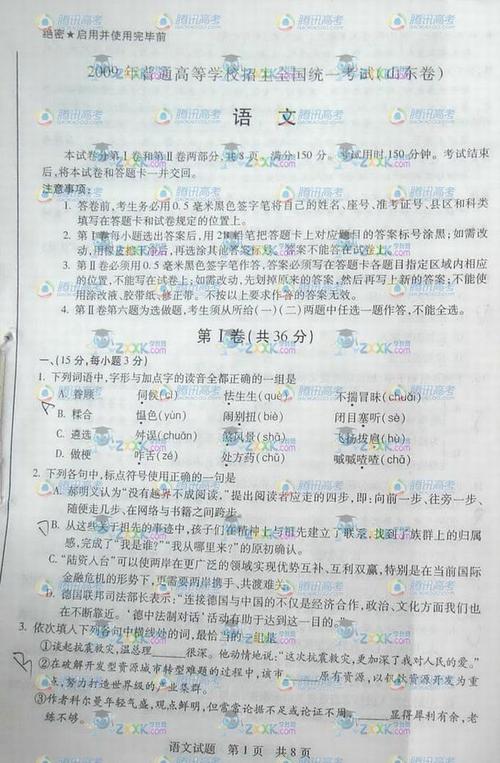 绝密★启用并使用完毕前
2009年普通高等学校招生全国统一考试(山东卷)
语 文
本试卷分第Ⅰ卷和第Ⅱ卷两部分,共8页。满分150分。考试用时150分钟。考试结束
后,将本试卷和答题卡一并交回。
注意事项:
1. 答卷前,考生务必用0.5毫米黑色签字笔将自己的姓名、座号、准考证号、县区和科类
填写在答题卡和试卷规定的位置上。
2. 第Ⅰ卷每小题选出答案后,用2B铅笔把答题卡上对应题目的答案标号涂黑;如需改
动,用橡皮擦干净后,再选涂其他答案标号。答案不能答在试卷上。
3. 第Ⅱ卷必须用0.5毫米黑色签字笔作答,答案必须写在答题卡各题目指定区域内相应
的位置,不能写在试卷上;如需改动,先划掉原来的答案,然后再写上新的答案;不能使
用涂改液、胶带纸、修正带。不按以上要求作答的答案无效。
4. 第Ⅱ卷第六题为选做题,考生须从所给(一)(二)两题中任选一题作答,不能全选。
第Ⅰ卷(共36分)
一、(15分,每小题3分)
1. 下列词语中,字形与加点字的读音全都正确的一组是
A. 眷顾 伺候(cì) 怯生生(què) 不揣冒昧(chuǎi)
B. 糅合 愠色(yùn) 闹别扭(biè) 闭目塞听(sè)
C. 遴选 舛误(chuǎn) 煞风景(shā) 飞扬拔扈(hù)
D. 做梗 咋舌(zé) 处方药(chǔ) 喊喊喳喳(chā)
2. 下列各句中,标点符号使用正确的一句是
A. 郝明义认为“没有越界不成阅读,”提出阅读者应走的四步,即:向前一步、往旁一步、
随便走几步、在网络与书籍之间跨步。
B. 从这些关于祖先的事迹中,孩子们在精神上与祖先建立了联系,找到了族群上的归属
感,完成了“我是谁?”“我从哪里来?”的原初确认。
C. “陆资入台”可以使两岸在更广泛的领域实现优势互补、互利双赢,特别是在当前国际
金融危机的形势下,更需要两岸携手,共渡难关。
D. 德国联邦司法部长表示:“连接德国与中国的不仅是经济合作,政治、文化方面我们也
在不断靠近。‘德中法制对话’活动有助于达到这一目的。
3. 依次填入下列各句中横线处的词,最恰当的一组是
①谈起抗震救灾,温总理______很深。他动情地说:“这次抗震救灾,更加深了我对人民的爱。”
②在破解开发型资源城市转型难题的过程中,该市______原有资源,以仅依靠资源开发为重
点,努力打造世界级的产业集群。
③作者科尔曼年轻气盛,观点鲜明,但常常论据不足或论证不周,______显得犀利有余,老
练不够。
语文试题 第1页 共8页
腾讯高考
ZXXK.com
学科网